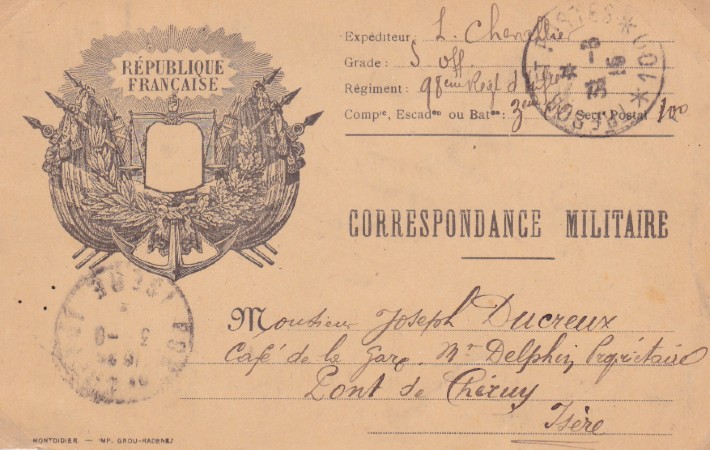 RÉPUBLIQUE
FRANÇAISE
Expéditeur: L. Chevallier
Grade: S off.
Régiment: 98eme Regt d'Infie
Compie, Escadon ou Baton: 3eme Sectr Postal 100
TRESOR ET POSTES * 100 *
31 - 8
16
CORRESPONDANCE MILITAIRE
Monsieur Joseph Ducreux
Café de la Gare, Mr Delphin, Propriétaire
Pont de Chéruy
Isère
MONTDIDIER. — IMP. GROU-RADENEZ